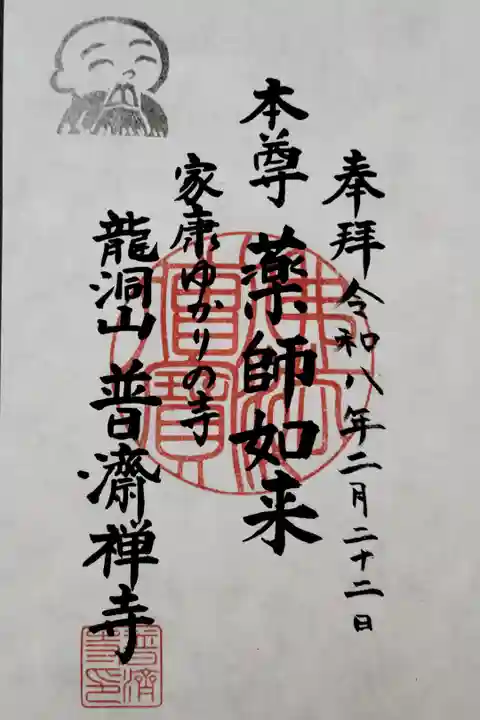 奉拝 令和八年二月二十二日
本尊 薬師如来
家康ゆかりの寺
龍洞山 普濟禅寺